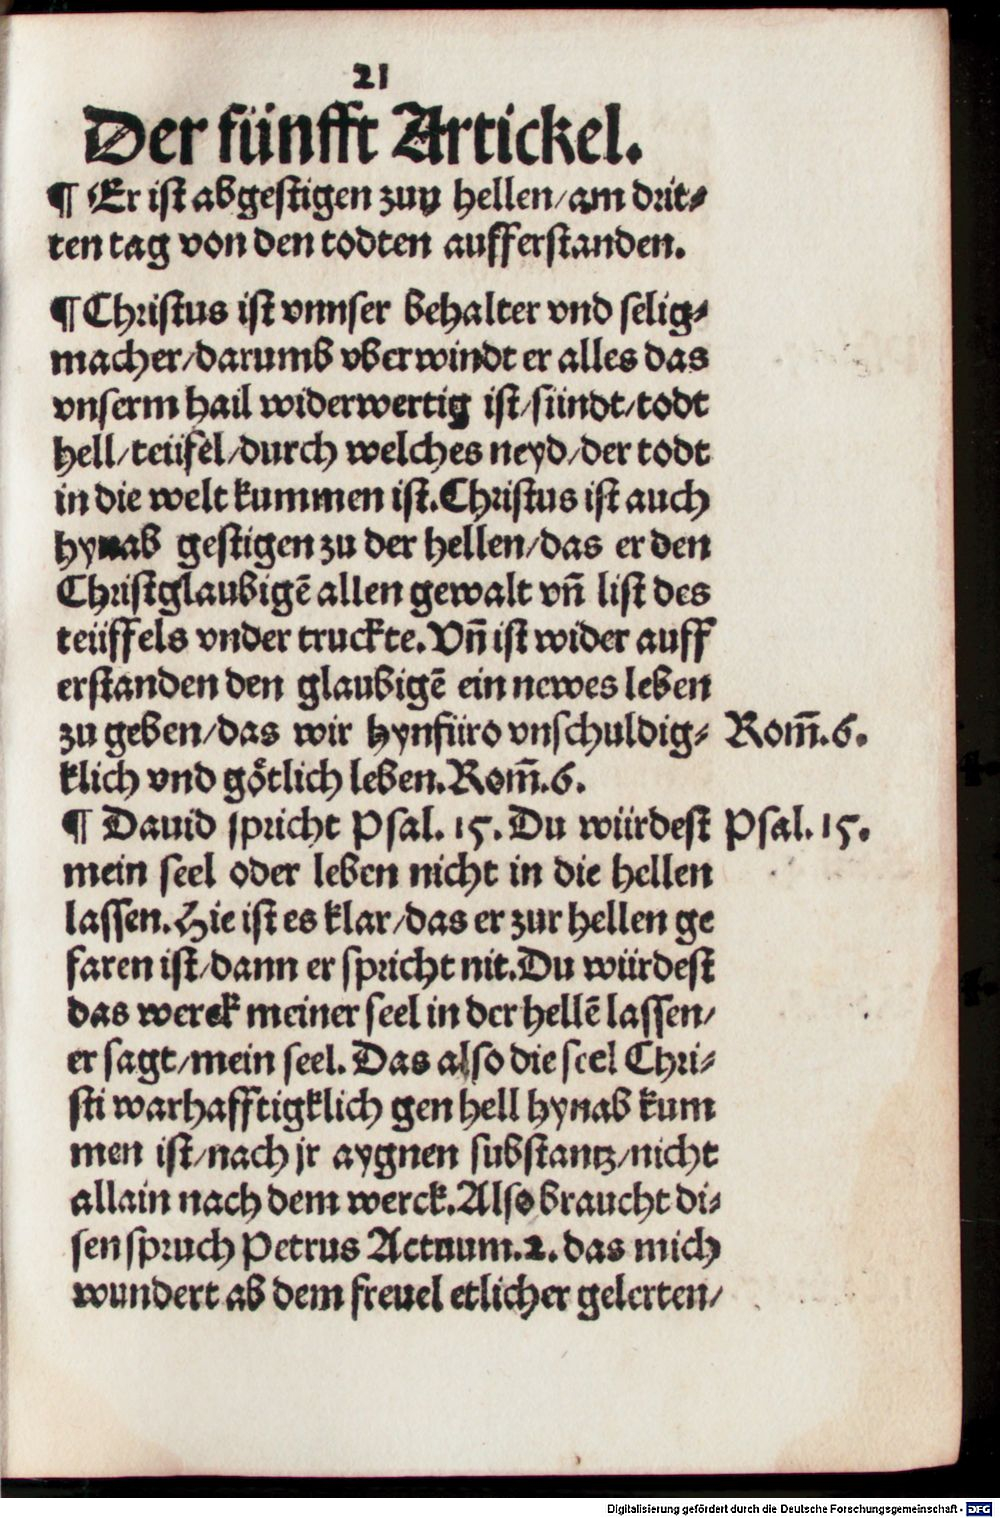 21
Der fünfft Artickel.
¶ Er ist abgestigen zuͦ hellen/am drit⸗
ten tag von den todten aufferstanden.
¶ Christus ist vnnser behalter vnd selig⸗
macher/darumb vberwindt er alles das
vnserm hail widerwertig ist/sündt/todt
hell/teüfel/durch welches neyd/der todt
in die welt kummen ist.Christus ist auch
hynab gestigen zu der hellen/das er den
Christglaubigē allen gewalt vn̄ list des
teüffels vnder truckte.Vn̄ ist wider auff
erstanden den glaubigē ein newes leben
zu geben/das wir hynfüro vnschuldig⸗ Rom̄.6.
klich vnd goͤtlich leben.Rom̄.6.
¶ Dauid spricht Psal. 15. Du würdest Psal. 15.
mein seel oder leben nicht in die hellen
lassen.Hie ist es klar/das er zur hellen ge
faren ist/dann er spricht nit.Du würdest
das werck meiner seel in der hellē lassen/
er sagt/mein seel. Das also die seel Chri⸗
sti warhafftigklich gen hell hynab kum
men ist/nach jr aygnen substantz/nicht
allain nach dem werck.Also braucht di⸗
sen spruch Petrus Actuum.2. das mich
wundert ab dem freuel etlicher gelerten/
Digitalisierung gefördert durch die Deutsche Forschungsgemeinschaft - DFG